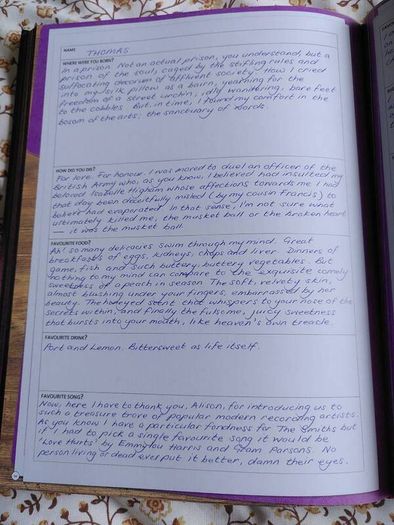 NAME THOMAS
WHERE WERE YOU BORN?
In a prison. Not an actual prison, you understand, but a
prison of the soul, caged by the stifling rules and
suffocating decorum of affluent society. How I cried
into my silk pillow as a bairn, yearning for the
freedom of a street urchin, idly wandering, bare feet
to the cobbles. But, in time, I found my comfort in the
bosom of the arts, the sanctuary of words.
HOW DID YOU DIE?
For love. For honour. I was moved to duel an officer of the
British Army who, as you know, I believed had insulted my
beloved Isabelle Higham whose affections towards me I had
that day been deceitfully misled (by my cousin Francis) to
believe had evaporated. In that sense, I'm not sure what
ultimately killed me, the musket ball or the broken heart
— it was the musket ball.
FAVOURITE FOOD?
Ah! So many delicacies swim through my mind. Great
breakfasts of eggs, kidneys, chops and liver. Dinners of
game, fish and such buttery, buttery vegetables. But
nothing to my mind can compare to the exquisite comely
sweetness of a peach in season. The soft, velvety skin,
almost blushing under your fingers, embarrassed by her
beauty. The honeyed scent that whispers to your nose of the
secrets within, and finally the fulsome, juicy sweetness
that bursts into your mouth, like heaven's own treacle.
FAVOURITE DRINK?
Port and Lemon. Bittersweet as life itself.
FAVOURITE SONG?
Now, here I have to thank you, Alison, for introducing us to
such a treasure trove of popular modern recording artists.
As you know I have a particular fondness for The Smiths but
if I had to pick a single favourite song it would be
'Love Hurts' by Emmylou Harris and Gram Parsons. No
person living or dead ever put it better, damn their eyes.